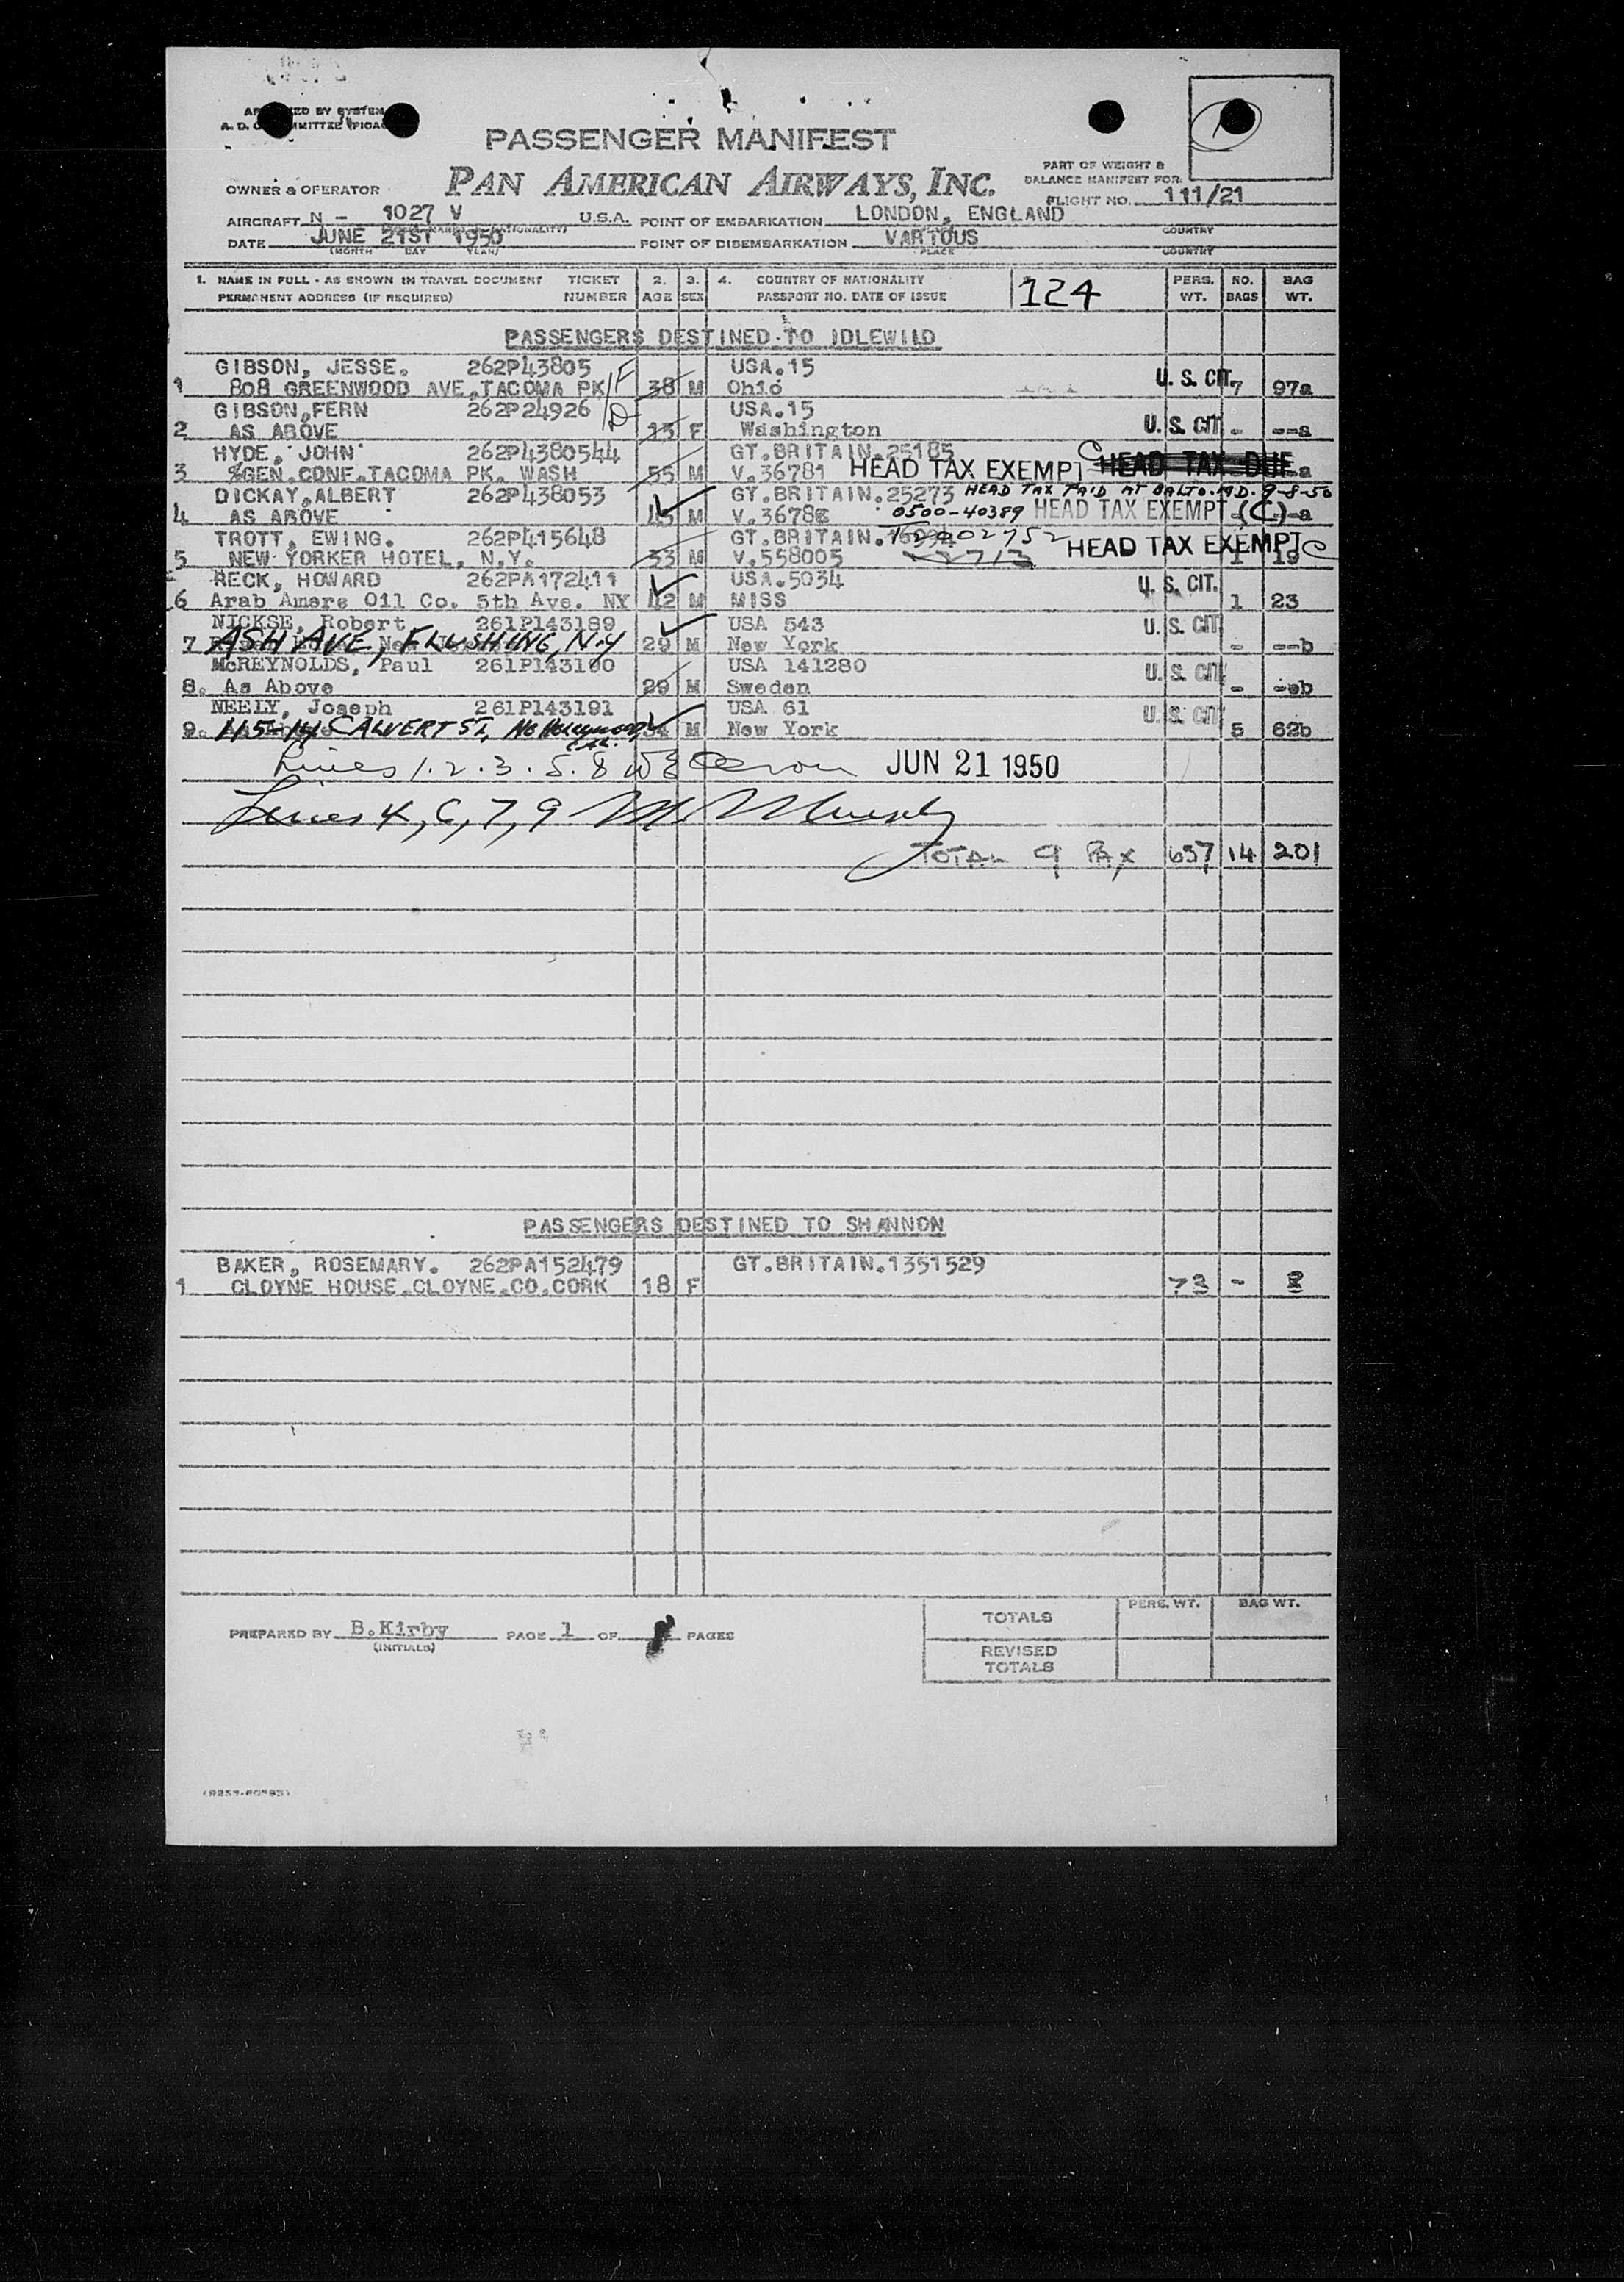 PASSENGER MANIFEST
PAN AMERICAN AIRWAYS, INC.
PART OF WEIGHT &
BALANCE MANIFEST FOR:
OWNER & OPERATOR
FLIGHT NO. 111/21
AIRCRAFT N - 1027 V U.S.A. POINT OF EMBARKATION LONDON, ENGLAND
COUNTRY
DATE JUNE 21ST 1950 POINT OF DISEMBARKATION VARIOUS
(MONTH DAY YEAR) PLACE COUNTRY
1. NAME IN FULL - AS SHOWN IN TRAVEL DOCUMENT TICKET 2. 3. 4. COUNTRY OF NATIONALITY 124 PERS. NO. BAG
PERMANENT ADDRESS (IF REQUIRED) NUMBER AGE SEX PASSPORT NO. DATE OF ISSUE WT. BAGS WT.
PASSENGERS DESTINED TO IDLEWILD
GIBSON, JESSE. 262P43805 F USA.15
1 808 GREENWOOD AVE,TACOMA PK 38 M Ohio U. S. CIT. 7 97a
GIBSON,FERN 262P24926 D USA.15
2 AS ABOVE 13 F Washington U. S. CIT. - --a
HYDE, JOHN 262P4380544 GT.BRITAIN.25185
3 %GEN.CONF.TACOMA PK. WASH 55 M V.36781 HEAD TAX EXEMPT C HEAD TAX DUE a
DICKAY,ALBERT 262P438053 GT.BRITAIN.25273 HEAD TAX PAID AT BALTO. MD. 9-8-50
4 AS ABOVE 45 M V.3678 0500-40389 HEAD TAX EXEMPT (C) -a
TROTT, EWING. 262P415648 GT.BRITAIN. 002752
5 NEW YORKER HOTEL, N.Y. 33 M V.558005 HEAD TAX EXEMPT C 1 19
RECK, HOWARD 262PA172411 USA.5034
6 Arab Amere Oil Co. 5th Ave. NY 42 M MISS U. S. CIT. 1 23
NICKSE, Robert 261P143189 USA 543
7 ASH AVE, FLUSHING, N.Y 29 M New York U. S. CIT. - --b
McREYNOLDS, Paul 261P143190 USA 141280
8. As Above 29 M Sweden U. S. CIT. - --b
NEELY, Joseph 261P143191 USA 61
9. 11544 CALVERT ST, NO HOLLYWOOD, CAL. M New York U. S. CIT. 5 62b
Lines 1. 2. 3. 5. 8 JUN 21 1950
Lines 4, 6, 7, 9 Murphy
TOTAL 9 PAX 657 14 201
PASSENGERS DESTINED TO SHANNON
BAKER, ROSEMARY. 262PA152479 GT.BRITAIN.1351529
1 CLOYNE HOUSE.CLOYNE.CO.CORK 18 F 73 - 8
PERS. WT. BAG WT.
TOTALS
PREPARED BY B.Kirby PAGE 1 OF PAGES
(INITIALS)
REVISED
TOTALS